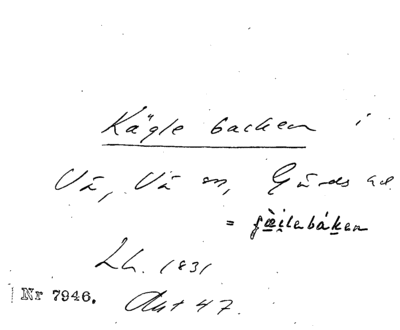 Kägle backen i
Vä, Vä sn, Gärds hd.
= gœ̀ilebáken
Lh. 1831
Nr 7946. Akt 47.